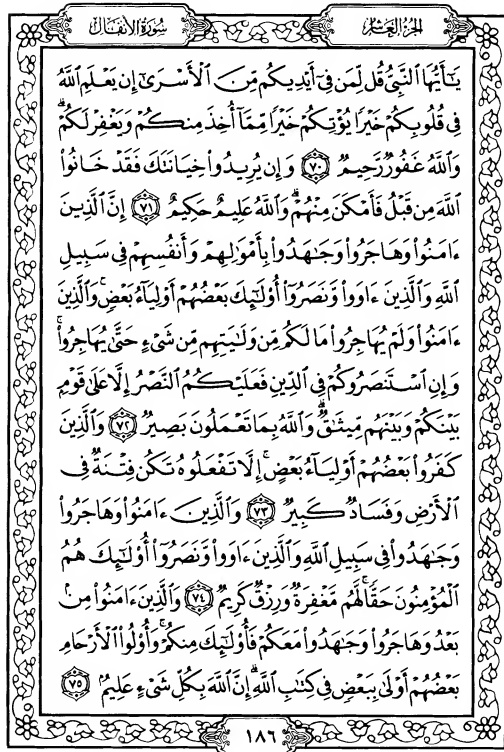 سُورَةُ الأَنفَال
الجُزءُ العَاشِر
يَٰٓأَيُّهَا ٱلنَّبِىُّ قُل لِّمَن فِىٓ أَيْدِيكُم مِّنَ ٱلْأَسْرَىٰٓ إِن يَعْلَمِ ٱللَّهُ
فِى قُلُوبِكُمْ خَيْرًا يُؤْتِكُمْ خَيْرًا مِّمَّآ أُخِذَ مِنكُمْ وَيَغْفِرْ لَكُمْ ۗ
وَٱللَّهُ غَفُورٌ رَّحِيمٌ ٧٠ وَإِن يُرِيدُوا۟ خِيَانَتَكَ فَقَدْ خَانُوا۟
ٱللَّهَ مِن قَبْلُ فَأَمْكَنَ مِنْهُمْ ۗ وَٱللَّهُ عَلِيمٌ حَكِيمٌ ٧١ إِنَّ ٱلَّذِينَ
ءَامَنُوا۟ وَهَاجَرُوا۟ وَجَٰهَدُوا۟ بِأَمْوَٰلِهِمْ وَأَنفُسِهِمْ فِى سَبِيلِ
ٱللَّهِ وَٱلَّذِينَ ءَاوَوا۟ وَّنَصَرُوٓا۟ أُو۟لَٰٓئِكَ بَعْضُهُمْ أَوْلِيَآءُ بَعْضٍ ۚ وَٱلَّذِينَ
ءَامَنُوا۟ وَلَمْ يُهَاجِرُوا۟ مَا لَكُم مِّن وَلَٰيَتِهِم مِّن شَىْءٍ حَتَّىٰ يُهَاجِرُوا۟ ۚ
وَإِنِ ٱسْتَنصَرُوكُمْ فِى ٱلدِّينِ فَعَلَيْكُمُ ٱلنَّصْرُ إِلَّا عَلَىٰ قَوْمٍۭ
بَيْنَكُمْ وَبَيْنَهُم مِّيثَٰقٌ ۗ وَٱللَّهُ بِمَا تَعْمَلُونَ بَصِيرٌ ٧٢ وَٱلَّذِينَ
كَفَرُوا۟ بَعْضُهُمْ أَوْلِيَآءُ بَعْضٍ ۚ إِلَّا تَفْعَلُوهُ تَكُن فِتْنَةٌ فِى
ٱلْأَرْضِ وَفَسَادٌ كَبِيرٌ ٧٣ وَٱلَّذِينَ ءَامَنُوا۟ وَهَاجَرُوا۟
وَجَٰهَدُوا۟ فِى سَبِيلِ ٱللَّهِ وَٱلَّذِينَ ءَاوَوا۟ وَّنَصَرُوٓا۟ أُو۟لَٰٓئِكَ هُمُ
ٱلْمُؤْمِنُونَ حَقًّا ۚ لَّهُم مَّغْفِرَةٌ وَرِزْقٌ كَرِيمٌ ٧٤ وَٱلَّذِينَ ءَامَنُوا۟ مِنۢ
بَعْدُ وَهَاجَرُوا۟ وَجَٰهَدُوا۟ مَعَكُمْ فَأُو۟لَٰٓئِكَ مِنكُمْ ۚ وَأُو۟لُوا۟ ٱلْأَرْحَامِ
بَعْضُهُمْ أَوْلَىٰ بِبَعْضٍ فِى كِتَٰبِ ٱللَّهِ ۗ إِنَّ ٱللَّهَ بِكُلِّ شَىْءٍ عَلِيمٌۢ ٧٥
١٨٦